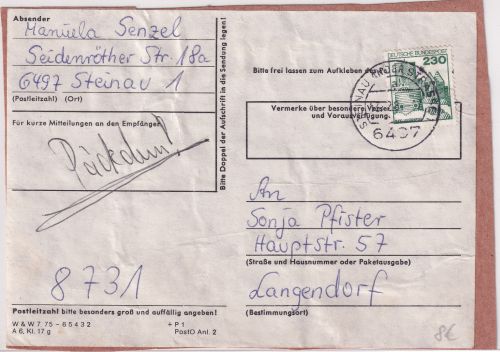 Absender
Manuela Senzel
Seidenröther Str. 18a
6497 Steinau 1
(Postleitzahl) (Ort)
Für kurze Mitteilungen an den Empfänger
Päckchen!
8731
Postleitzahl bitte besonders groß und auffällig angeben!
W & W 7 75 - 65432
A 6, Kl. 17 g
+ P 1
PostO Anl. 2
Bitte Doppel der Aufschrift in die Sendung legen!
DEUTSCHE BUNDESPOST
230
Bitte frei lassen zum Aufkleben
Vermerke über besondere
und Vorausverfügung
STEINAU
6497
An
Sonja Pfister
Hauptstr. 57
(Straße und Hausnummer oder Paketausgabe)
Langendorf
(Bestimmungsort)
8€